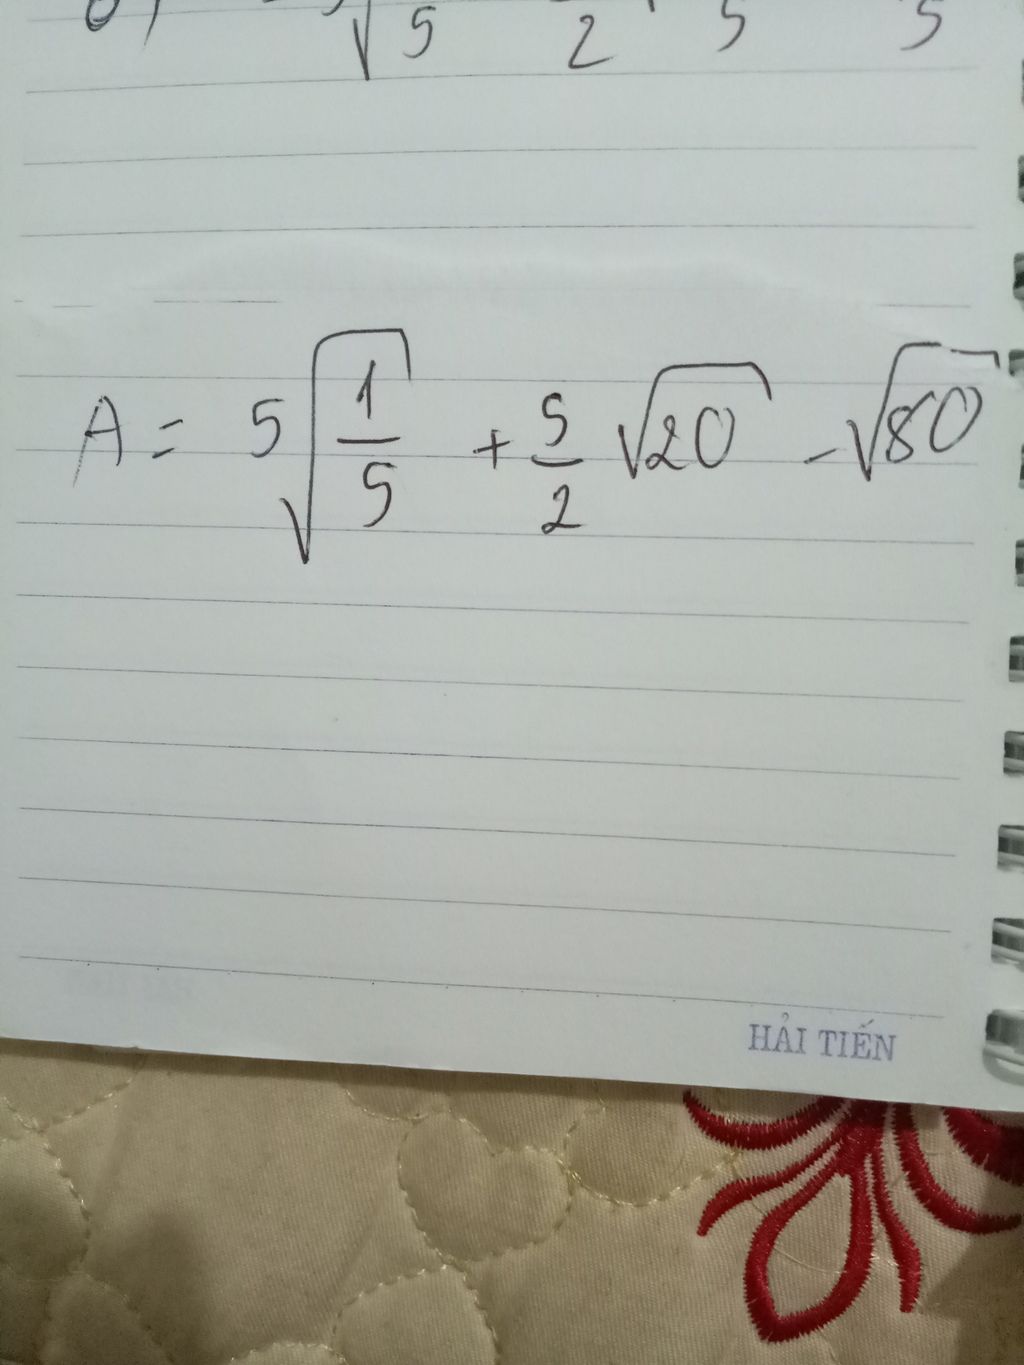 A = 5√(1/5) + 5/2 √20 - √80
HẢI TIẾN